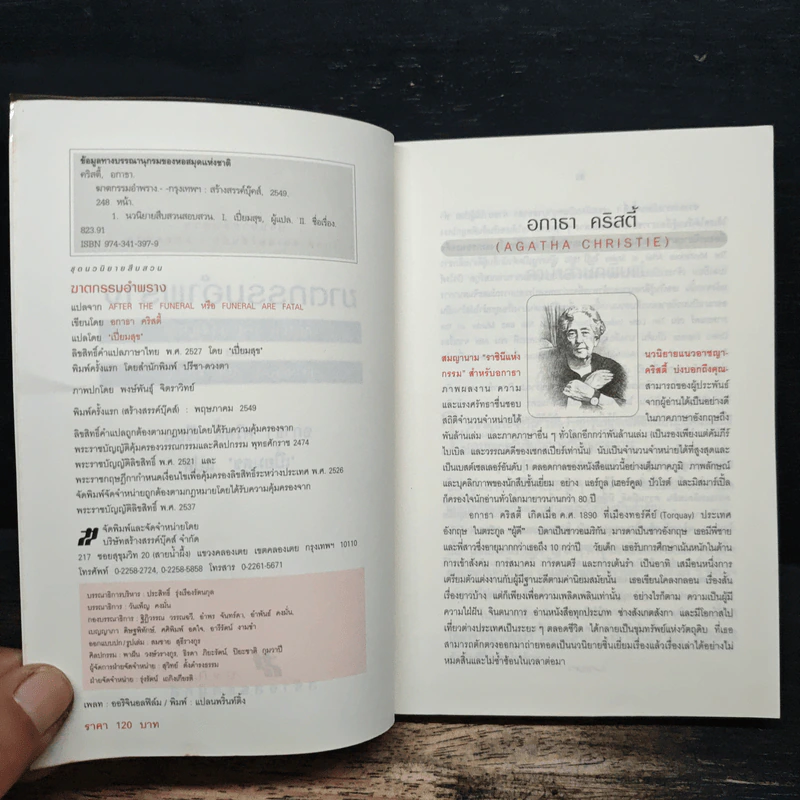 ข้อมูลทางบรรณานุกรมของหอสมุดแห่งชาติ
คริสตี้, อกาธา.
ฆาตกรรมอำพราง - -กรุงเทพฯ : สร้างสรรค์บุ๊คส์, 2549.
248 หน้า.
1. นวนิยายสืบสวนสอบสวน. I. เปี่ยมสุข, ผู้แปล. II. ชื่อเรื่อง.
823.91
ISBN 974-341-397-9
ชุดนวนิยายสืบสวน
ฆาตกรรมอำพราง
แปลจาก AFTER THE FUNERAL หรือ FUNERAL ARE FATAL
เขียนโดย อกาธา คริสตี้
แปลโดย "เปี่ยมสุข"
ลิขสิทธิ์คำแปลภาษาไทย พ.ศ. 2527 โดย "เปี่ยมสุข"
พิมพ์ครั้งแรก โดยสำนักพิมพ์ ปรีชา-ดวงตา
ภาพปกโดย พงษ์พันธุ์ จิตราวิทย์
พิมพ์ครั้งแรก (สร้างสรรค์บุ๊คส์) : พฤษภาคม 2549
ลิขสิทธิ์คำแปลถูกต้องตามกฎหมายโดยได้รับความคุ้มครองจาก
พระราชบัญญัติคุ้มครองวรรณกรรมและศิลปกรรม พุทธศักราช 2474
พระราชบัญญัติลิขสิทธิ์ พ.ศ. 2521 และ
พระราชกฤษฎีกากำหนดเงื่อนไขเพื่อคุ้มครองลิขสิทธิ์ระหว่างประเทศ พ.ศ. 2526
จัดพิมพ์จัดจำหน่ายถูกต้องตามกฎหมายโดยได้รับความคุ้มครองจาก
พระราชบัญญัติลิขสิทธิ์ พ.ศ. 2537
จัดพิมพ์และจัดจำหน่ายโดย
บริษัทสร้างสรรค์บุ๊คส์ จำกัด
217 ซอยสุขุมวิท 20 (สายน้ำผึ้ง) แขวงคลองเตย เขตคลองเตย กรุงเทพฯ 10110
โทรศัพท์ 0-2258-2724, 0-2258-5858 โทรสาร 0-2261-5671
บรรณาธิการบริหาร : ประสิทธิ์ รุ่งเรืองรัตนกุล
บรรณาธิการ : วันเพ็ญ คงมั่น
กองบรรณาธิการ : ฐิฏิวรรณ วรรณฉวี, อำพร จันทร์ดา, อำพันธ์ คงมั่น,
เบญญาภา ศิษฐพิทักษ์, คติพิมพ์ อดใจ, อารีรัตน์ งามขำ
ออกแบบปก/รูปเล่ม : สมชาย สุริวรางกูร
ผู้จัดการฝ่ายจัดจำหน่าย : สุวิทย์ ตั้งดำรงธรรม
ฝ่ายจัดจำหน่าย : รุ่งรัตน์
เพลท : ออริจินอลฟิล์ม / พิมพ์ : แปลนพริ้นท์ติ้ง
ราคา 120 บาท
อกาธา คริสตี้
(AGATHA CHRISTIE)
สมญานาม "ราชินีแห่งนวนิยายแนวอาชญา-
กรรม" สำหรับอกาธา คริสตี้ บ่งบอกถึงคุณ-
ภาพผลงาน ความสามารถของผู้ประพันธ์
และแรงศรัทธาชื่นชอบจากผู้อ่านได้เป็นอย่างดี
สถิติจำนวนจำหน่ายได้ในภาคภาษาอังกฤษถึง
พันล้านเล่ม และภาคภาษาอื่น ๆ ทั่วโลกอีกกว่าพันล้านเล่ม (เป็นรองเพียงแต่คัมภีร์
ไบเบิล และวรรณคดีของเชกสเปียร์เท่านั้น) นับเป็นจำนวนจำหน่ายได้ที่สูงสุดและ
เป็นเบสต์เซลเลอร์อันดับ 1 ตลอดกาลของหนังสือแนวนี้อย่างเต็มภาคภูมิ ภาพลักษณ์
และบุคลิกภาพของนักสืบชั้นเยี่ยม อย่าง แอร์กูล (เฮอร์คูล) ปัวโรต์ และมิสมาร์เปิ้ล
ก็ครองใจนักอ่านทั่วโลกมายาวนานกว่า 80 ปี
อกาธา คริสตี้ เกิดเมื่อ ค.ศ. 1890 ที่เมืองทอร์คีย์ (Torquay) ประเทศ
อังกฤษ ในตระกูล "ผู้ดี" บิดาเป็นชาวอเมริกัน มารดาเป็นชาวอังกฤษ เธอมีพี่ชาย
และพี่สาวซึ่งอายุมากกว่าเธอถึง 10 กว่าปี วัยเด็ก เธอรับการศึกษาเน้นหนักในด้าน
การเข้าสังคม การสมาคม การดนตรี และการเต้นรำ เป็นอาทิ เสมือนหนึ่งการ
เตรียมตัวแต่งงานกับผู้มีฐานะดีตามค่านิยมสมัยนั้น เธอเขียนโคลงกลอน เรื่องสั้น
เรื่องยาวบ้าง แต่ก็เพียงเพื่อความเพลิดเพลินเท่านั้น อย่างไรก็ตาม ความเป็นผู้มี
ความใฝ่ฝัน จินตนาการ อ่านหนังสือทุกประเภท ช่างสังเกตสังกา และมีโอกาสไป
เที่ยวต่างประเทศเป็นระยะ ๆ ตลอดชีวิต ได้กลายเป็นขุมทรัพย์แห่งวัตถุดิบ ที่เธอ
สามารถตักตวงออกมาถ่ายทอดเป็นนวนิยายชั้นเยี่ยมเรื่องแล้วเรื่องเล่าได้อย่างไม่
หมดสิ้นและไม่ซ้ำซ้อนในเวลาต่อมา